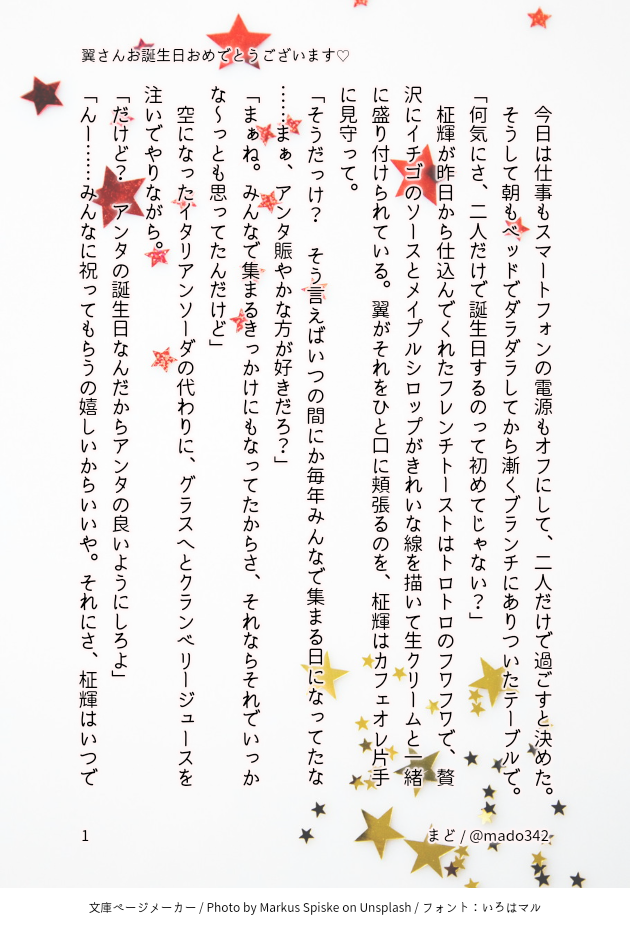 翼さんお誕生日おめでとうございます♡
　今日は仕事もスマートフォンの電源もオフにして、二人だけで過ごすと決めた。
　そうして朝もベッドでダラダラしてから漸くブランチにありついたテーブルで。
「何気にさ、二人だけで誕生日するのって初めてじゃない？」
　柾輝が昨日から仕込んでくれたフレンチトーストはトロトロのフワフワで、贅
沢にイチゴのソースとメイプルシロップがきれいな線を描いて生クリームと一緒
に盛り付けられている。翼がそれをひと口に頬張るのを、柾輝はカフェオレ片手
に見守って。
「そうだっけ？　そう言えばいつの間にか毎年みんなで集まる日になってたな
……まぁ、アンタ賑やかな方が好きだろ？」
「まぁね。みんなで集まるきっかけにもなってたからさ、それならそれでいっか
な〜っとも思ってたんだけど」
　空になったイタリアンソーダの代わりに、グラスへとクランベリージュースを
注いでやりながら。
「だけど？　アンタの誕生日なんだからアンタの良いようにしろよ」
「んー……みんなに祝ってもらうの嬉しいからいいや。それにさ、柾輝はいつで
1
まど / @mado342
文庫ページメーカー / Photo by Markus Spiske on Unsplash / フォント：いろはマル